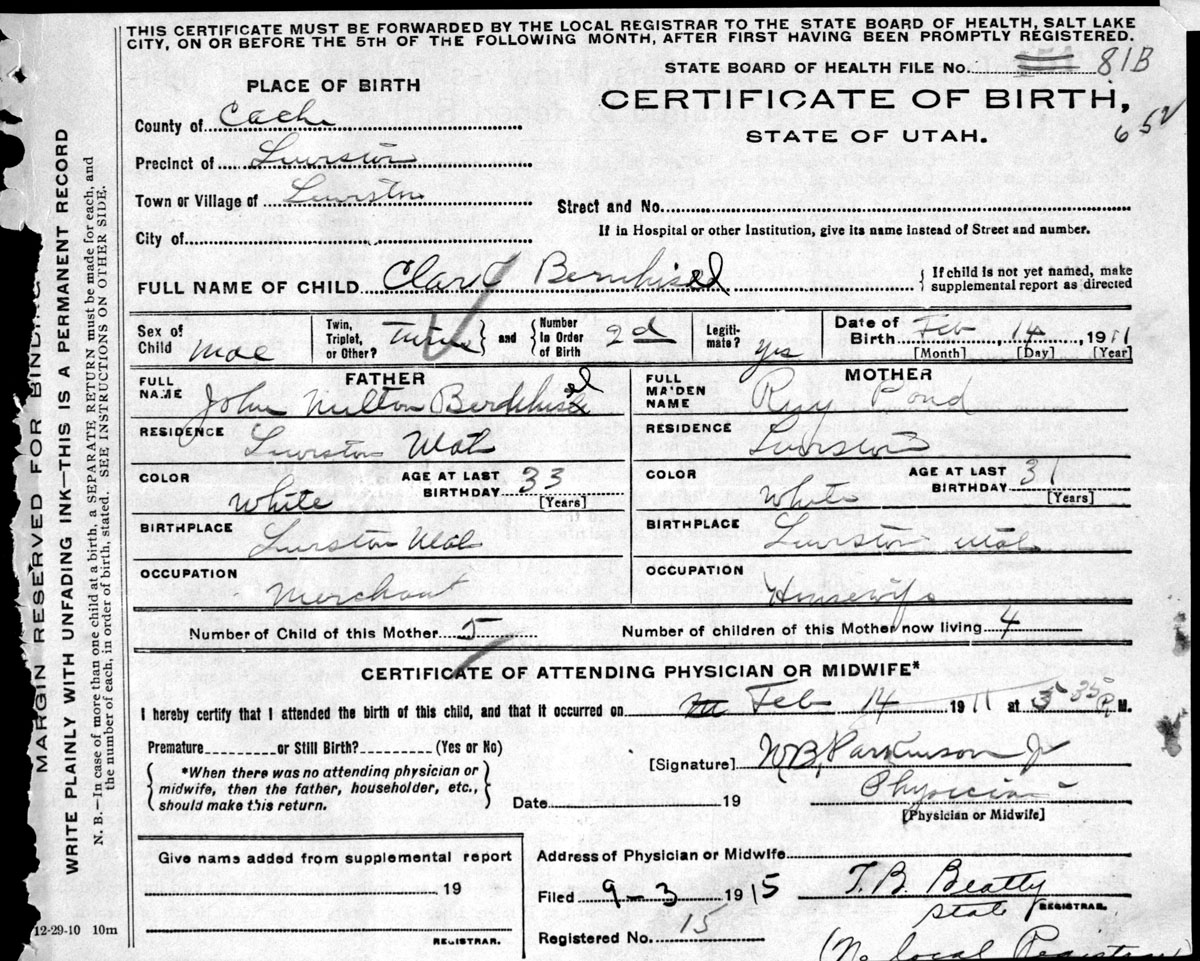 THIS CERTIFICATE MUST BE FORWARDED BY THE LOCAL REGISTRAR TO THE STATE BOARD OF HEALTH, SALT LAKE
CITY, ON OR BEFORE THE 5TH OF THE FOLLOWING MONTH, AFTER FIRST HAVING BEEN PROMPTLY REGISTERED.
STATE BOARD OF HEALTH FILE No. 81B
PLACE OF BIRTH
CERTIFICATE OF BIRTH,
STATE OF UTAH.
County of Cache
Precinct of Lewiston
Town or Village of Lewiston
Street and No.
City of
If in Hospital or other Institution, give its name instead of Street and number.
FULL NAME OF CHILD Bernhisel { If child is not yet named, make
supplemental report as directed
Sex of Child Male
Twin, Triplet, or Other? Twin } and { Number In Order of Birth 2d
Legiti-mate? yes
Date of Birth Feb, 14, 1911
[Month] [Day] [Year]
FATHER
FULL NAME John Milton
RESIDENCE Lewiston Utah
COLOR White
AGE AT LAST BIRTHDAY 33
[Years]
BIRTHPLACE Lewiston Utah
OCCUPATION Merchant
MOTHER
FULL MAIDEN NAME Pond
RESIDENCE Lewiston
COLOR White
AGE AT LAST BIRTHDAY 31
[Years]
BIRTHPLACE Lewiston Utah
OCCUPATION Housewife
Number of Child of this Mother 5
Number of children of this Mother now living 4
CERTIFICATE OF ATTENDING PHYSICIAN OR MIDWIFE*
I hereby certify that I attended the birth of this child, and that it occurred on Feb 14 1911 at 3 35 P.M.
Premature or Still Birth? (Yes or No)
{ *When there was no attending physician or
midwife, then the father, householder, etc.,
should make this return. }
[Signature] W.B. Parkinson Jr
Physician
Date 19
[Physician or Midwife]
Give name added from supplemental report
19
REGISTRAR.
12-29-10 10m
Address of Physician or Midwife
Filed 9-3 1915 T.B. Beatty
State REGISTRAR.
Registered No. 15
(No local Registrar)
MARGIN RESERVED FOR BINDING
WRITE PLAINLY WITH UNFADING INK—THIS IS A PERMANENT RECORD
N. B.—In case of more than one child at a birth, a SEPARATE RETURN must be made for each, and
the number of each, in order of birth, stated. SEE INSTRUCTIONS ON OTHER SIDE.